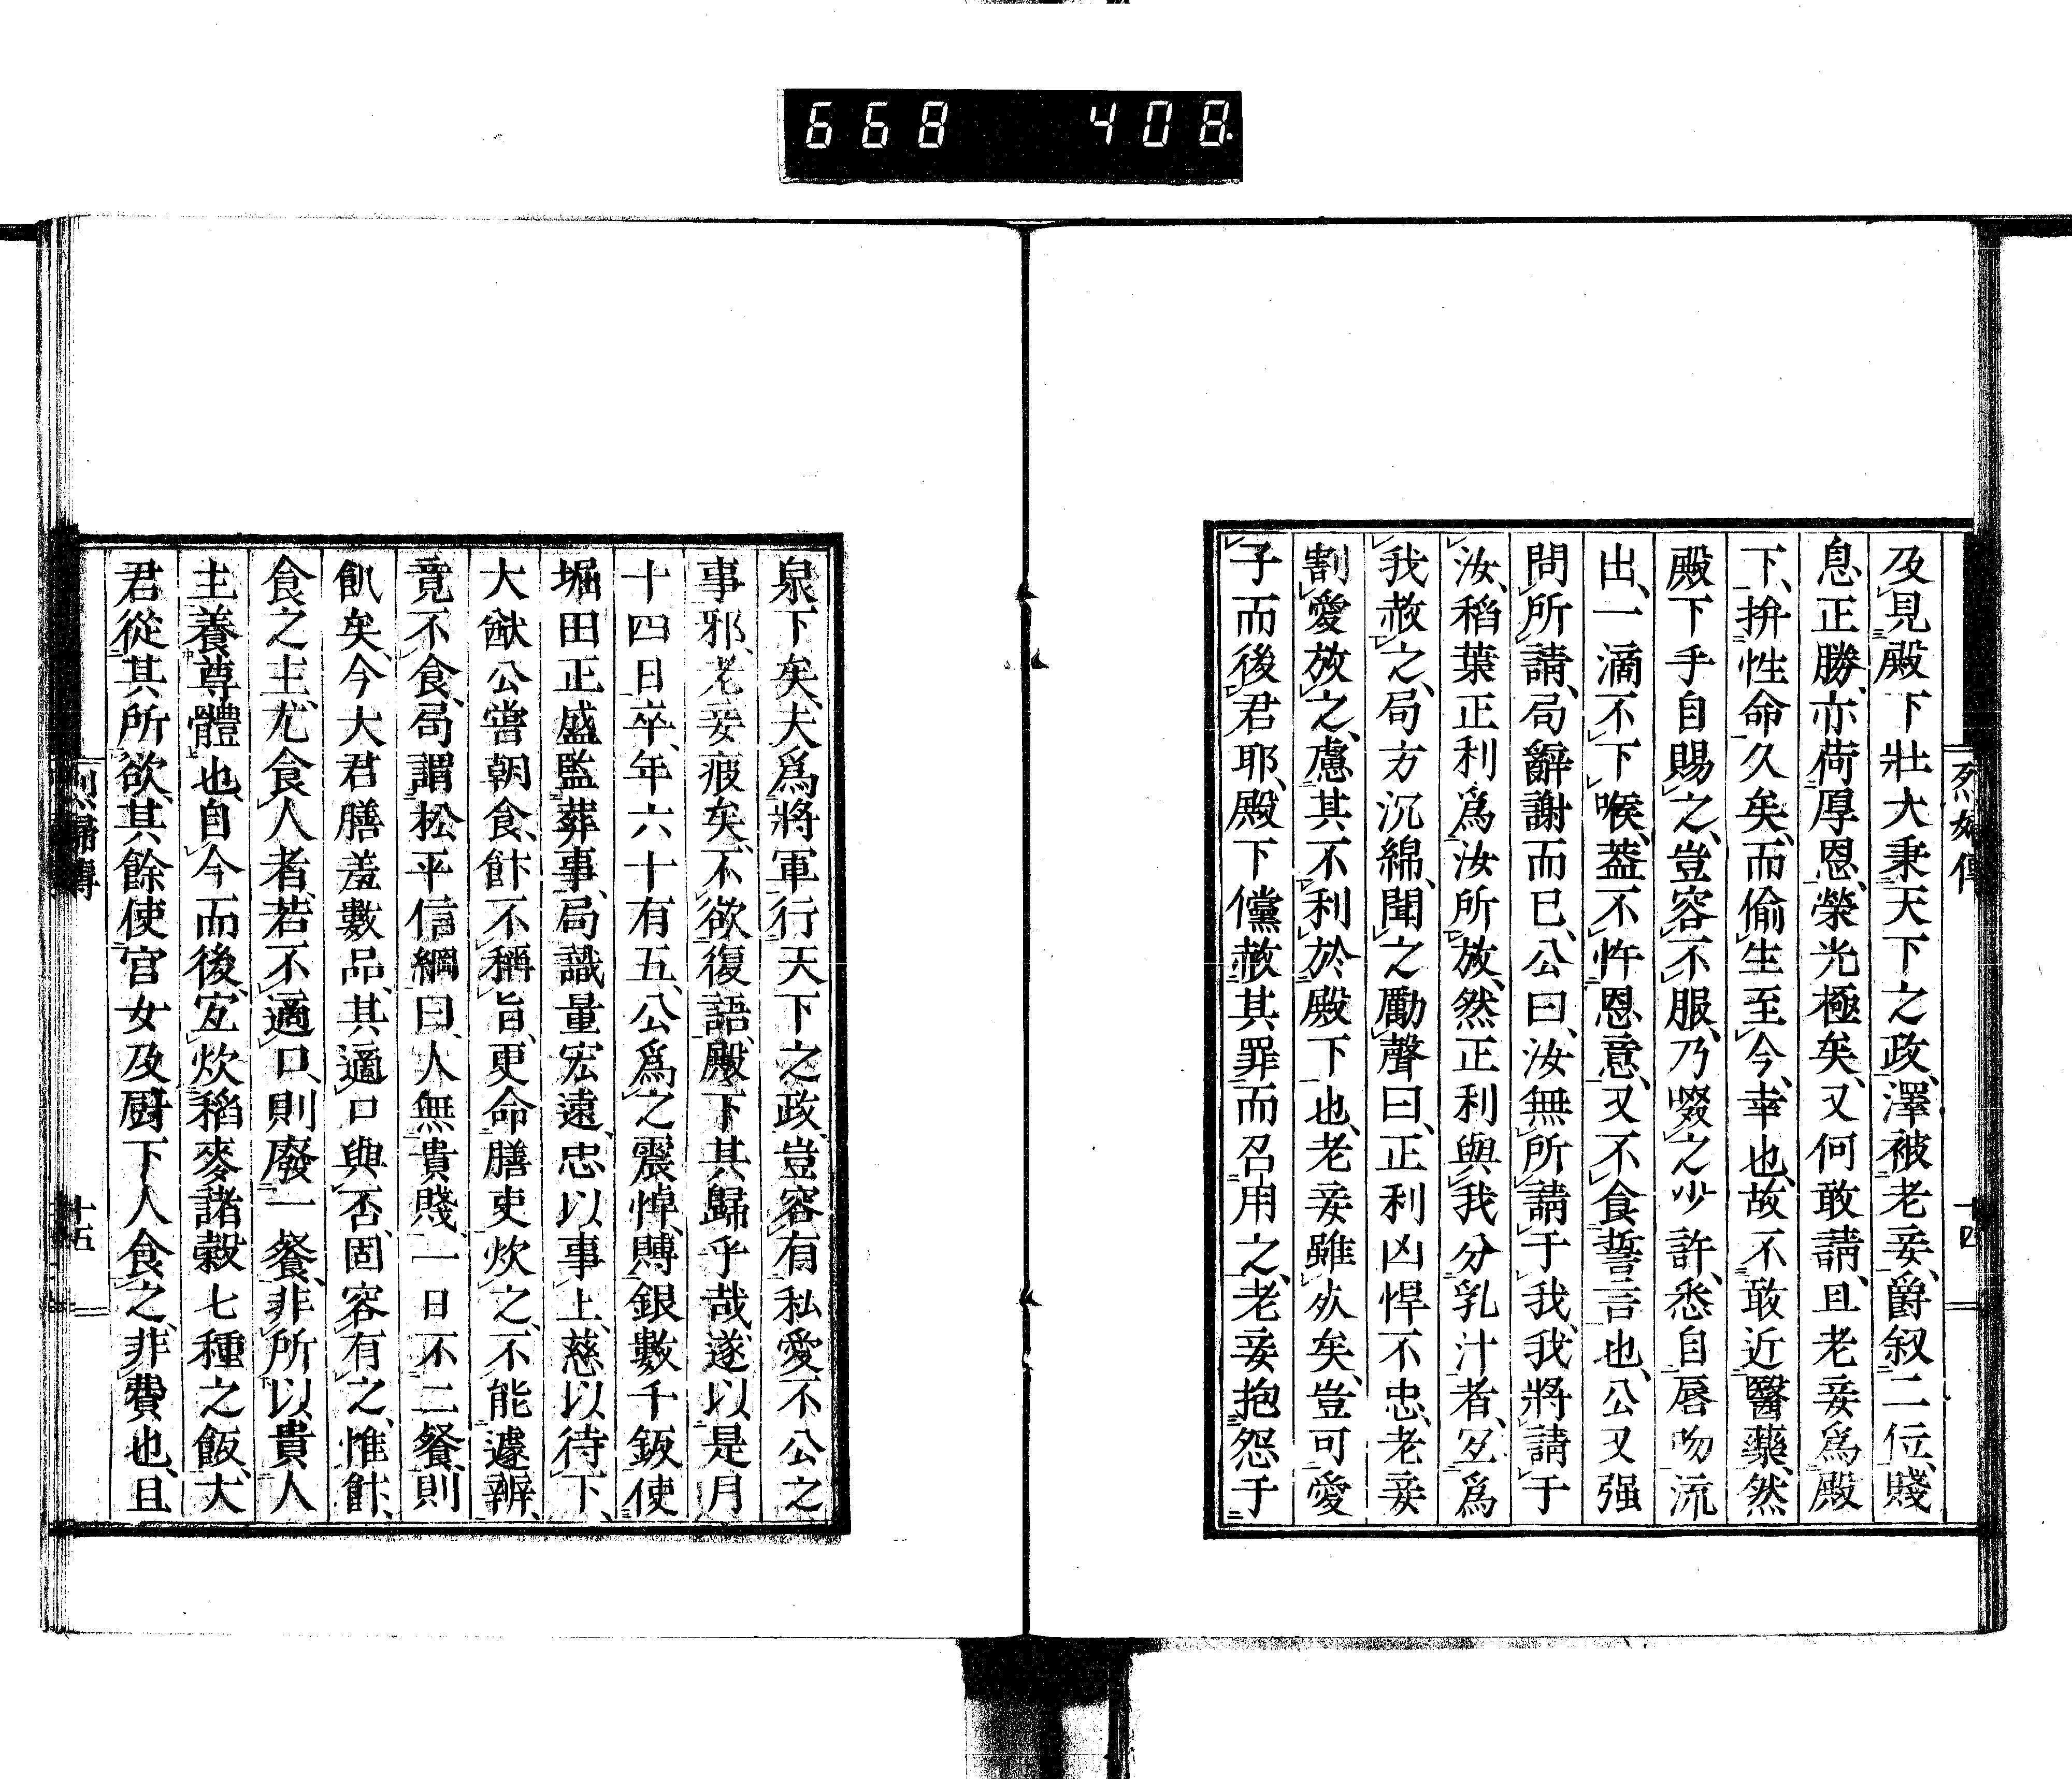 668 408
烈婦傳 十四
及見殿下壯大秉天下之政、澤被老妾、爵叙二位、賤
息正勝、亦荷厚恩、榮光極矣、又何敢請、且老妾爲殿
下、拚性命久矣、而偷生至今、幸也、故不敢近醫藥、然
殿下手自賜之、豈容不服、乃啜之少許、悉自唇吻流
出、一滴不下喉、葢不忤恩意、又不食誓言也、公又强
問所請、局辭謝而已、公曰、汝無所請于我、我將請于
汝、稻葉正利爲汝所放、然正利與我分乳汁者、宐爲
我赦之、局方沉綿、聞之勵聲曰、正利凶悍不忠、老妾
割愛放之、慮其不利於殿下也、老妾雖𣦸矣、豈可愛
子而後君耶、殿下儻赦其罪而召用之、老妾抱怨于
泉下矣、夫爲將軍行天下之政、豈容有私愛不公之
事邪、老妾疲矣、不欲復語、殿下其歸乎哉、遂以是月
十四日卒、年六十有五、公爲之震悼、賻銀數千鈑使
堀田正盛監葬事、局識量宏遠、忠以事上、慈以待下、
大猷公嘗朝食、飰不稱旨、更命膳吏炊之、不能遽辦、
竟不食、局謂松平信綱曰、人無貴賤、一日不二餐、則
飢矣、今大君膳羞數品、其適口與否、固容有之、惟飰、
食之主、尤食人者、若不適口、則廢一餐、非所以貴人
主養尊體也、自今而後、宐炊稻麥諸穀七種之飯、大
君從其所欲、其餘使官女及厨下人食之、非費也、且
烈婦傳 十五